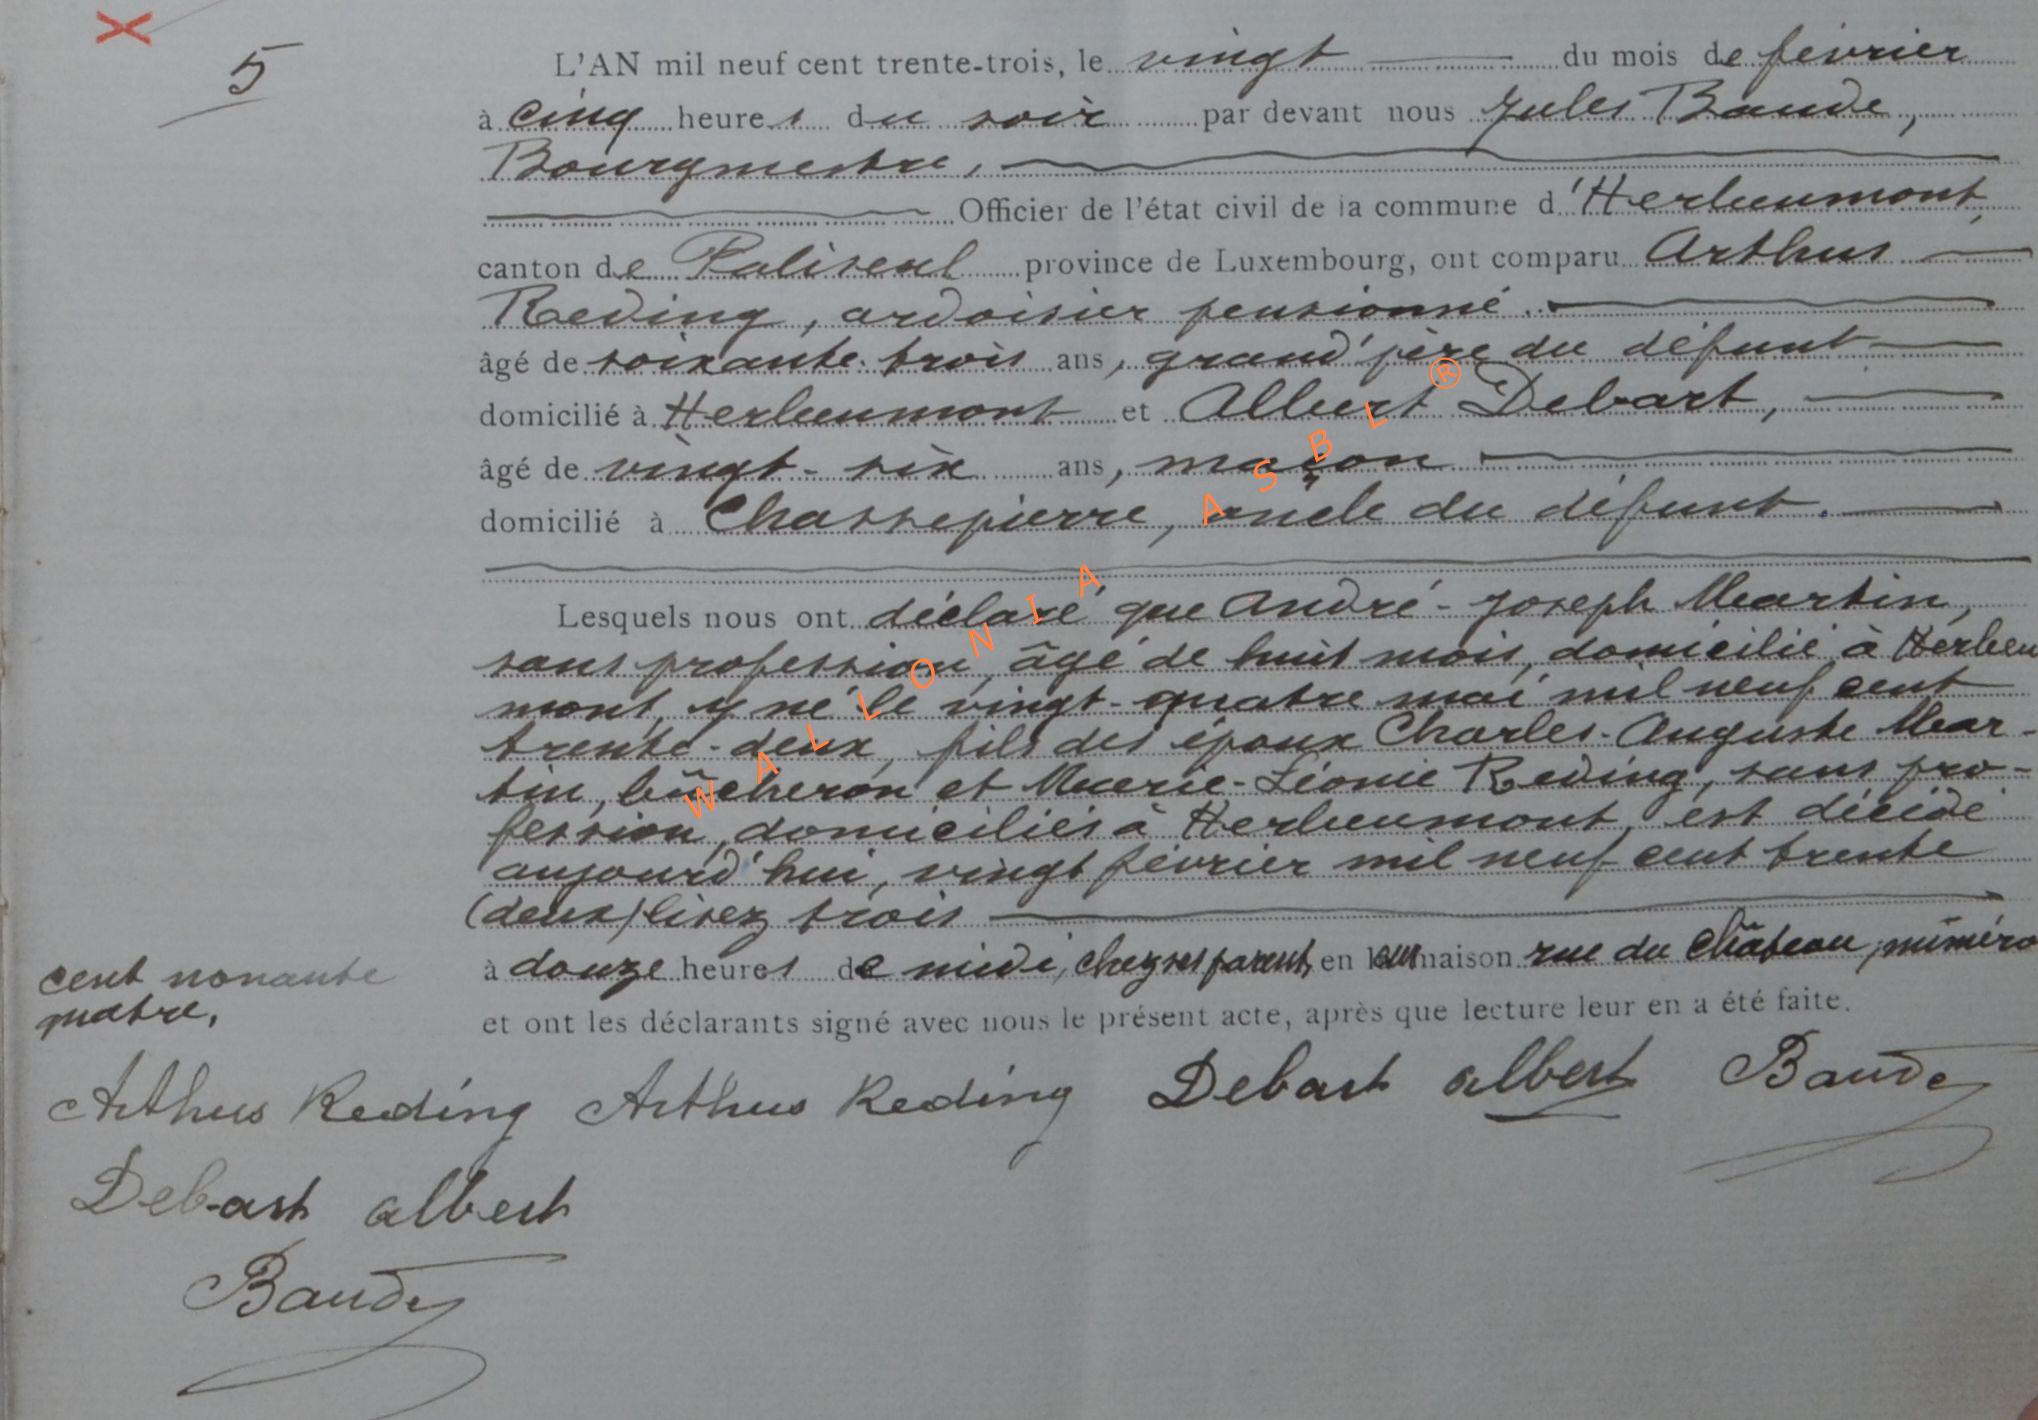 5
L'AN mil neuf cent trente-trois, le vingt du mois de février
à cinq heures du soir par devant nous Jules Baude,
Bourgmestre,
Officier de l'état civil de la commune d'Herbeumont,
canton de Paliseul province de Luxembourg, ont comparu Arthur
Reding, ardoisier pensionné
âgé de soixante-trois ans, grand'père du défunt
domicilié à Herbeumont et Albert Debart,
âgé de vingt-six ans, maçon
domicilié à Chassepierre, oncle du défunt.
Lesquels nous ont déclaré que André-Joseph Martin,
sans profession, âgé de huit mois, domicilié à Herbeu
mont, y né le vingt-quatre mai mil neuf cent
trente-deux, fils des époux Charles-Auguste Mar-
tin, bûcheron et Marie-Léonie Reding, sans pro-
fession, domiciliés à Herbeumont, est décédé
aujourd'hui, vingt février mil neuf cent trente
(deux) lisez trois
à douze heures de midi, chez ses parents, en leur maison rue du Château, numéro
cent nonante
quatre.
et ont les déclarants signé avec nous le présent acte, après que lecture leur en a été faite.
Arthur Reding Arthur Reding Debart albert Baude
Debart albert
Baude
WALLONIA ASBL ®